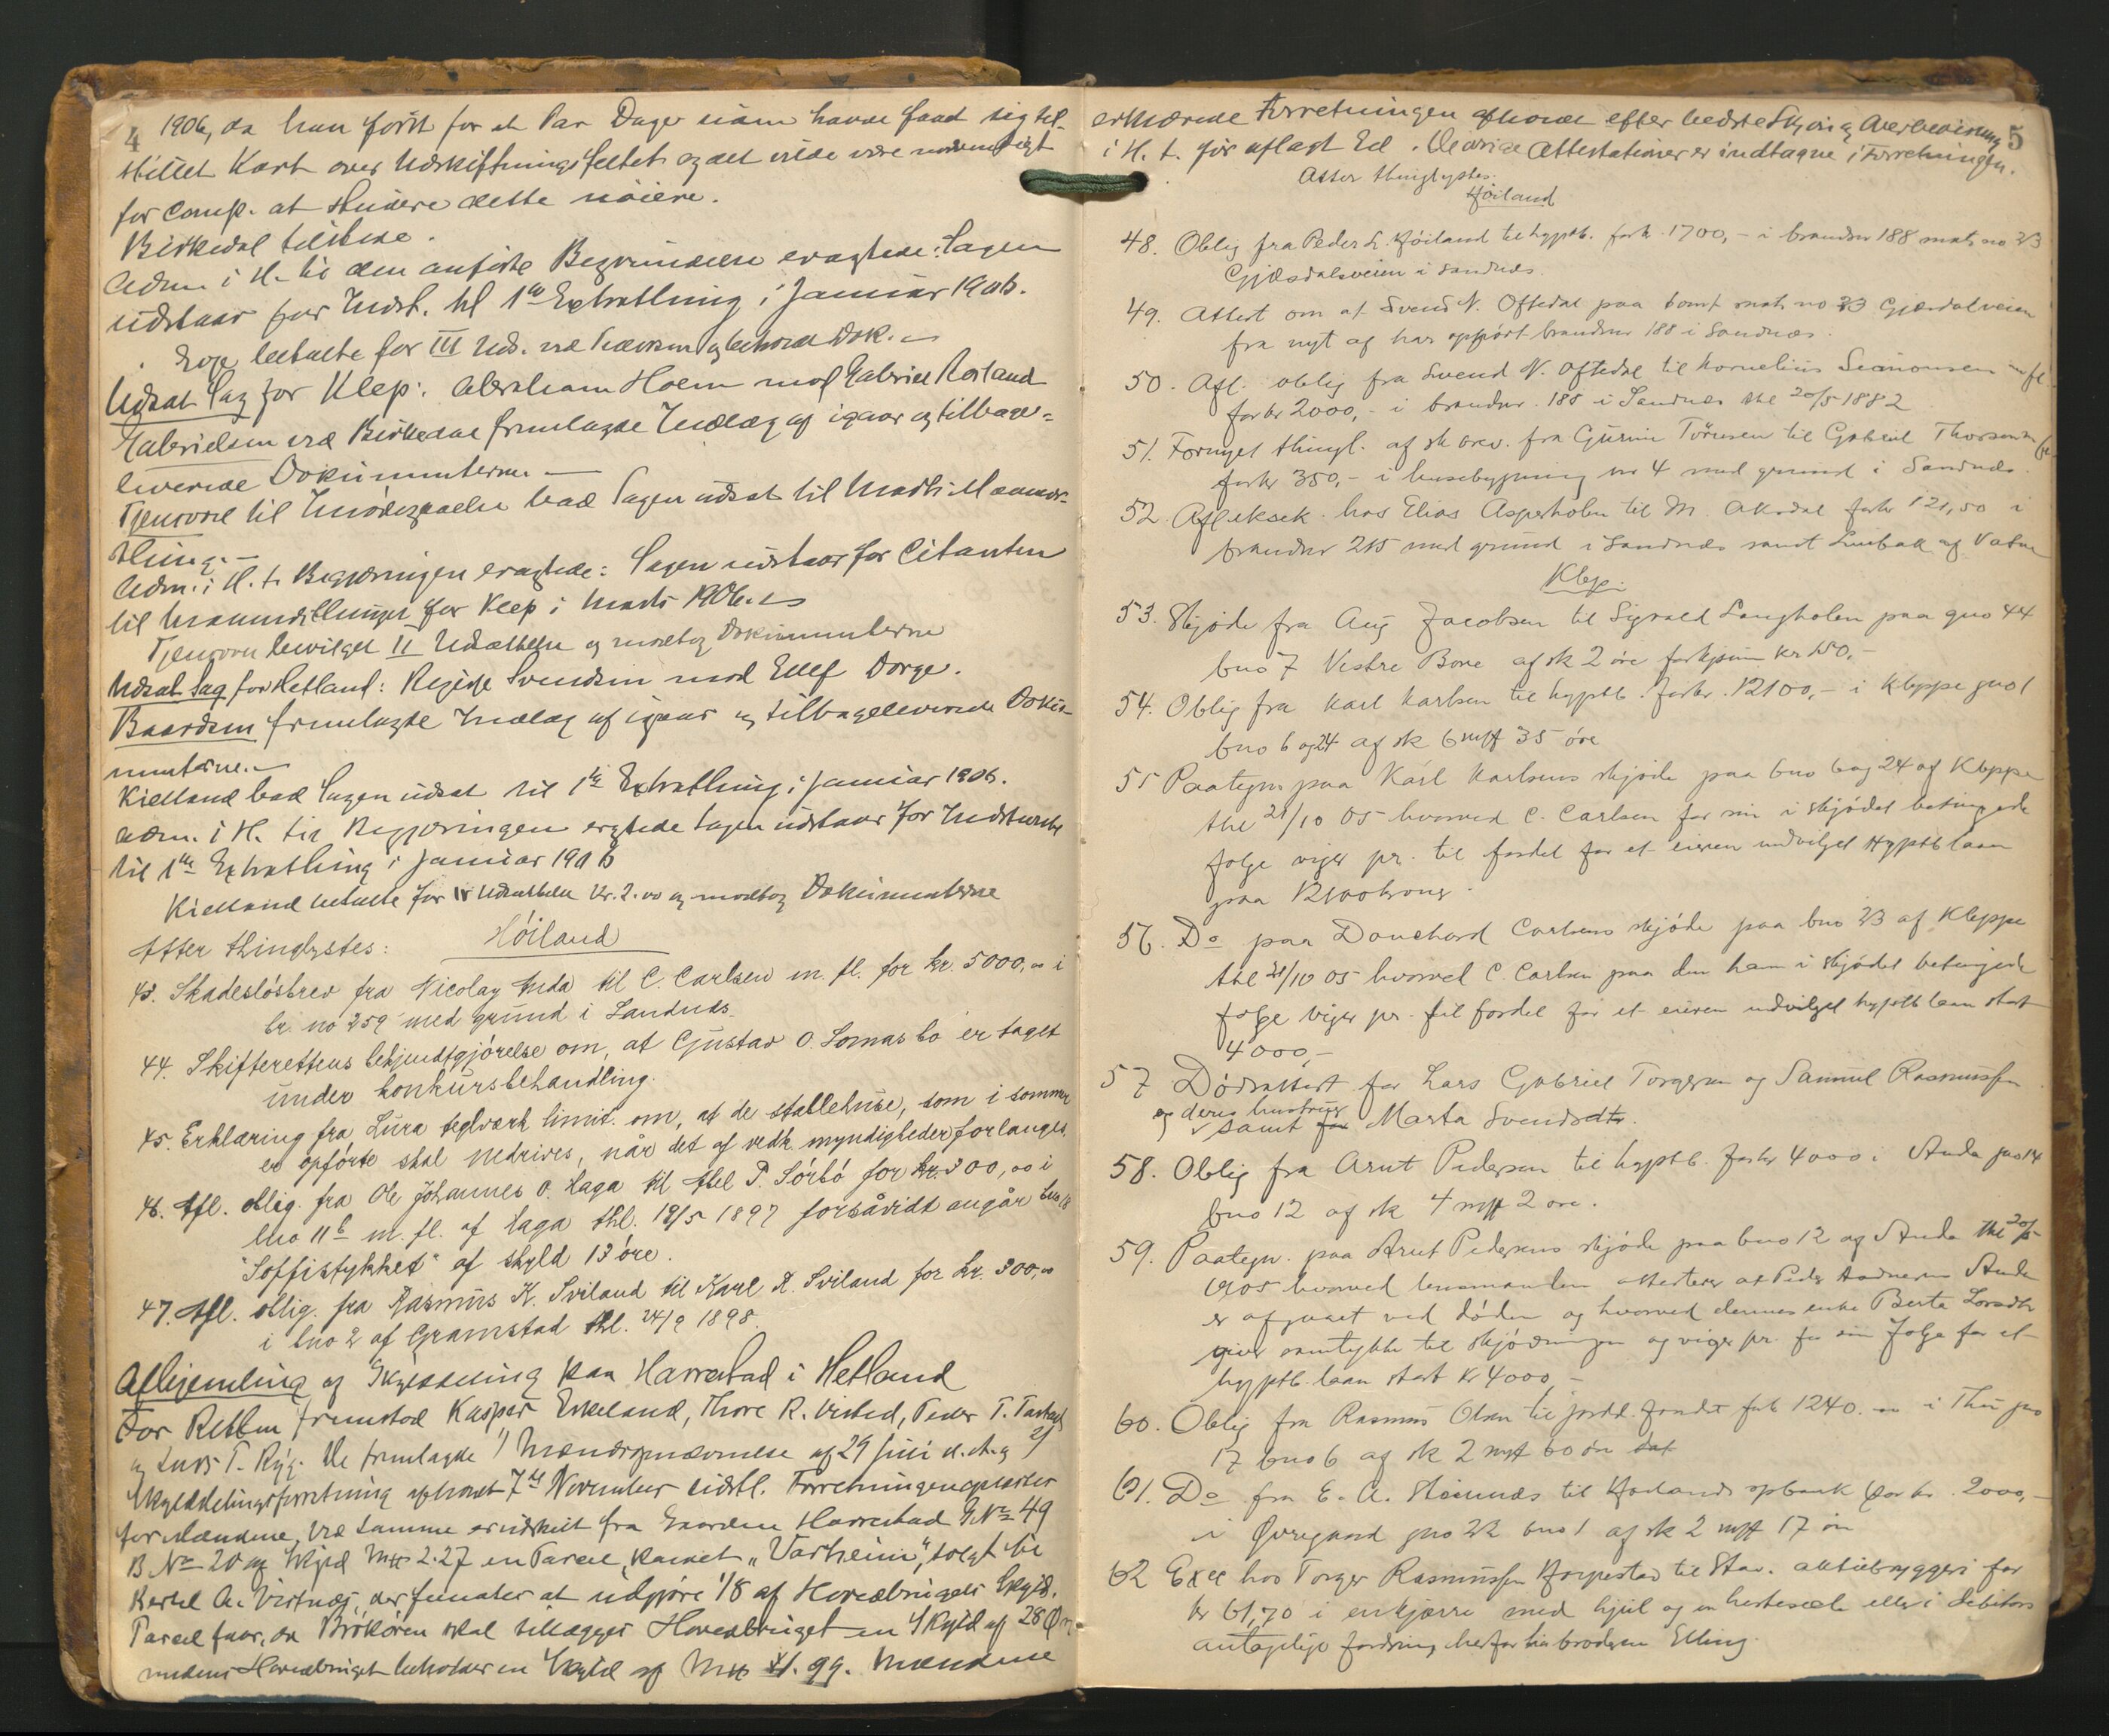 4
1906, da han først for et Par Dage siden havde faaet sig til-
stillet Kart over Udskiftningsfeltet og det vilde være nødvendigt
for Comp. at studere dette nøiere.
Birkedal tilstede.
Adm. i H. til den anførte Begrundelse eragtede: Sagen
udstaar for Indst. til 1ste Extrathing i Januar 1906.
betalte for III Uds. og Dok.
Udsat Sag for Klep: Abraham Holen mod Gabriel Roiland
Gabrielsen ved Birkedal fremlagde Indlæg af igaar og tilbage-
leverede Dokumenterne.
Tjensvold til Imødegaaelse bad Sagen udsat til Marts Maaneds-
thing.
Adm. i H. t. Begjæringen eragtede: Sagen udstaar for Citanten
til Maanedsthinget for Klep i Marts 1906.
Tjensvold bevilget II Udsættelse og modtog Dokumenterne
Udsat Sag for Hetland: Svendsen mod Ellef Dorge.
Baardsen fremlagde Indlæg af igaar og tilbageleverede Doku-
menterne.
Kielland bad Sagen udsat til 1ste Extrathing i Januar 1906.
Adm. i H. til Begjæringen eragtede Sagen udstaar for Indstevnte
til 1ste Extrathing i Januar 1906
Kielland betalte for IV Udsættelse Kr. 2.00 og modtog Dokumenterne
Atter thinglystes: Höiland
43. Skadeslösbrev fra Nicolay Inda til C. Carlsen m. fl. for kr. 5000,00 i
br. no 259 med grund i Sandnes.
44. Skifterettens bekjendtgjörelse om, at Gustav O. Lomas bo er taget
under konkursbehandling.
45. Erklæring fra Lura teglværk limit. om, at de stablehuse, som i sommer
er opförte skal nedrives, når det af vedk. myndigheder forlanges.
46. Afl. oblig. fra Ole Johannes O. Haga til Abel P. Sörbö for kr. 300,00 i
bno 11b m. fl. af Haga thl. 18/5 1897 forsåvidt angår bno 18
"Soffistykket" af skyld 13 öre.
47. Afl. oblig. fra Rasmus K. Sviland til Karl R. Sviland for kr. 300,00
i bno 2 af Gramstad thl. 24/9 1898.
Afhjemling og Skylddeling paa Harrestad i Hetland
For Retten fremstod Kasper Erkeland, Thore R. Ursted, Peder T.
og Lars T. Ryg. De fremlagde 1) Mændsopnævnelse af 29 Juli d. A. og 2)
Skylddelingsforretning afholdt 7de November sidstl. Forretningen
for Mændene. Ved samme er udskilt fra Gaarden Harrestad G.No 49
B No 20 af Skyld Mk 2.27 en Parcel, kaldet „Varheim“, solgt til
Bertel A. Vistnæs, der funder at udgjöre 1/8 af Hovedbrugets Skyld.
Parcel faar, da Brökören skal tillægges Hovedbruget en Skyld af 28 Øre
medens Hovedbruget beholder en Skyld af Mk 1.99. Mændene
5
erklærede Forretningen afholdt efter bedste Skjön og Overbevisning
i H. t. för aflagt Ed. De Attestationer er indtagne i Forretningen.
Atter thinglystes:
Höiland
48. Oblig fra Peder L. Höiland til hyptb. for kr. 1700,- i brandnr 188 mat. no 23
Gjæsdalsveien i Sandnæs.
49. Attest om at Svend N. Oftedal paa tomt mat. no 23 Gjæsdalveien
fra nyt af har opfört brandnr 188 i Sandnæs.
50. Afl. oblig fra Svend N. Oftedal til Kornelius Simonsen m fl
for kr 2000,- i brandnr. 188 i Sandnæs thl 20/5 1882
51. Fornyet thingl. af sk brev. fra Gurine Törresen til Gabriel Thorsen
for kr 350,- i husebygning nr 4 med grund i Sandnæs.
52. Afl eksek. hos Elias Aspeholen til M. Aksdal for kr 121,50 i
brandnr 215 med grund i Sandnæs samt Luebak af Vatne
Klep.
53. Skjöde fra Aug Jacobsen til Sigvald Langholen paa gno 44
bno 7 Vestre Bore af sk 2 öre for kjsum kr 150,-
54. Oblig fra Karl Karlsen til hyptb. for kr. 12100,- i Kleppe gno 1
bno 6 og 24 af sk 6 mk 35 öre
55 Paategn paa Karl Karlsens skjöde paa bno 6 og 24 af Kleppe
thl 21/10 05 hvorved C. Carlsen for sin i skjödet betingede
folge viger pr. til fordel for et eieren indvilget Hyptb laan
paa 12100 kroner.
56. Do paa Douchard Carlsens skjöde paa bno 23 af Kleppe
thl 21/10 05 hvorved C. Carlsen paa den ham i skjödet betingede
folge viger pr. til fordel for et eieren indvilget hyptb laan stort
4000,-
57 Dödsattest for Lars Gabriel Torgersen og Samuel Rasmussen
og deres hustruer samt for Marta Svendsdtr.
58. Oblig fra Arnt Pedersen til hyptb. for kr 4000 i Anda gno 14
bno 12 af sk 4 mk 2 öre.
59. Paategn. paa Arnt Pedersens skjöde paa bno 12 af Anda thl 20/5
1905 hvorved lensmanden attesterer at Peder Aadnesen Anda
er afgaaet ved döden og hvorved dennes enke Berta Larsdtr
giver samtykke til skjödningen og viger pr. for sin folge for et
hyptb. laan stort kr 4000,-
60. Oblig fra Rasmus Olsen til jordd. fondet for kr 1240.00 i Thu gno
17 bno 6 af sk 2 mk 60 öre
61. Do fra E. A. Steinnæs til Hölands spbank for kr. 2000,-
i Öxregaard gno 22 bno 1 af sk 2 mk 17 öre
62 Exek hos Torger Rasmussen Horpestad til Stav. aktiebryggeri for
kr 61,70 i en kjærre med hjul og en hestesæle eller i debitors
antagelige fordring hos broderen Elling.